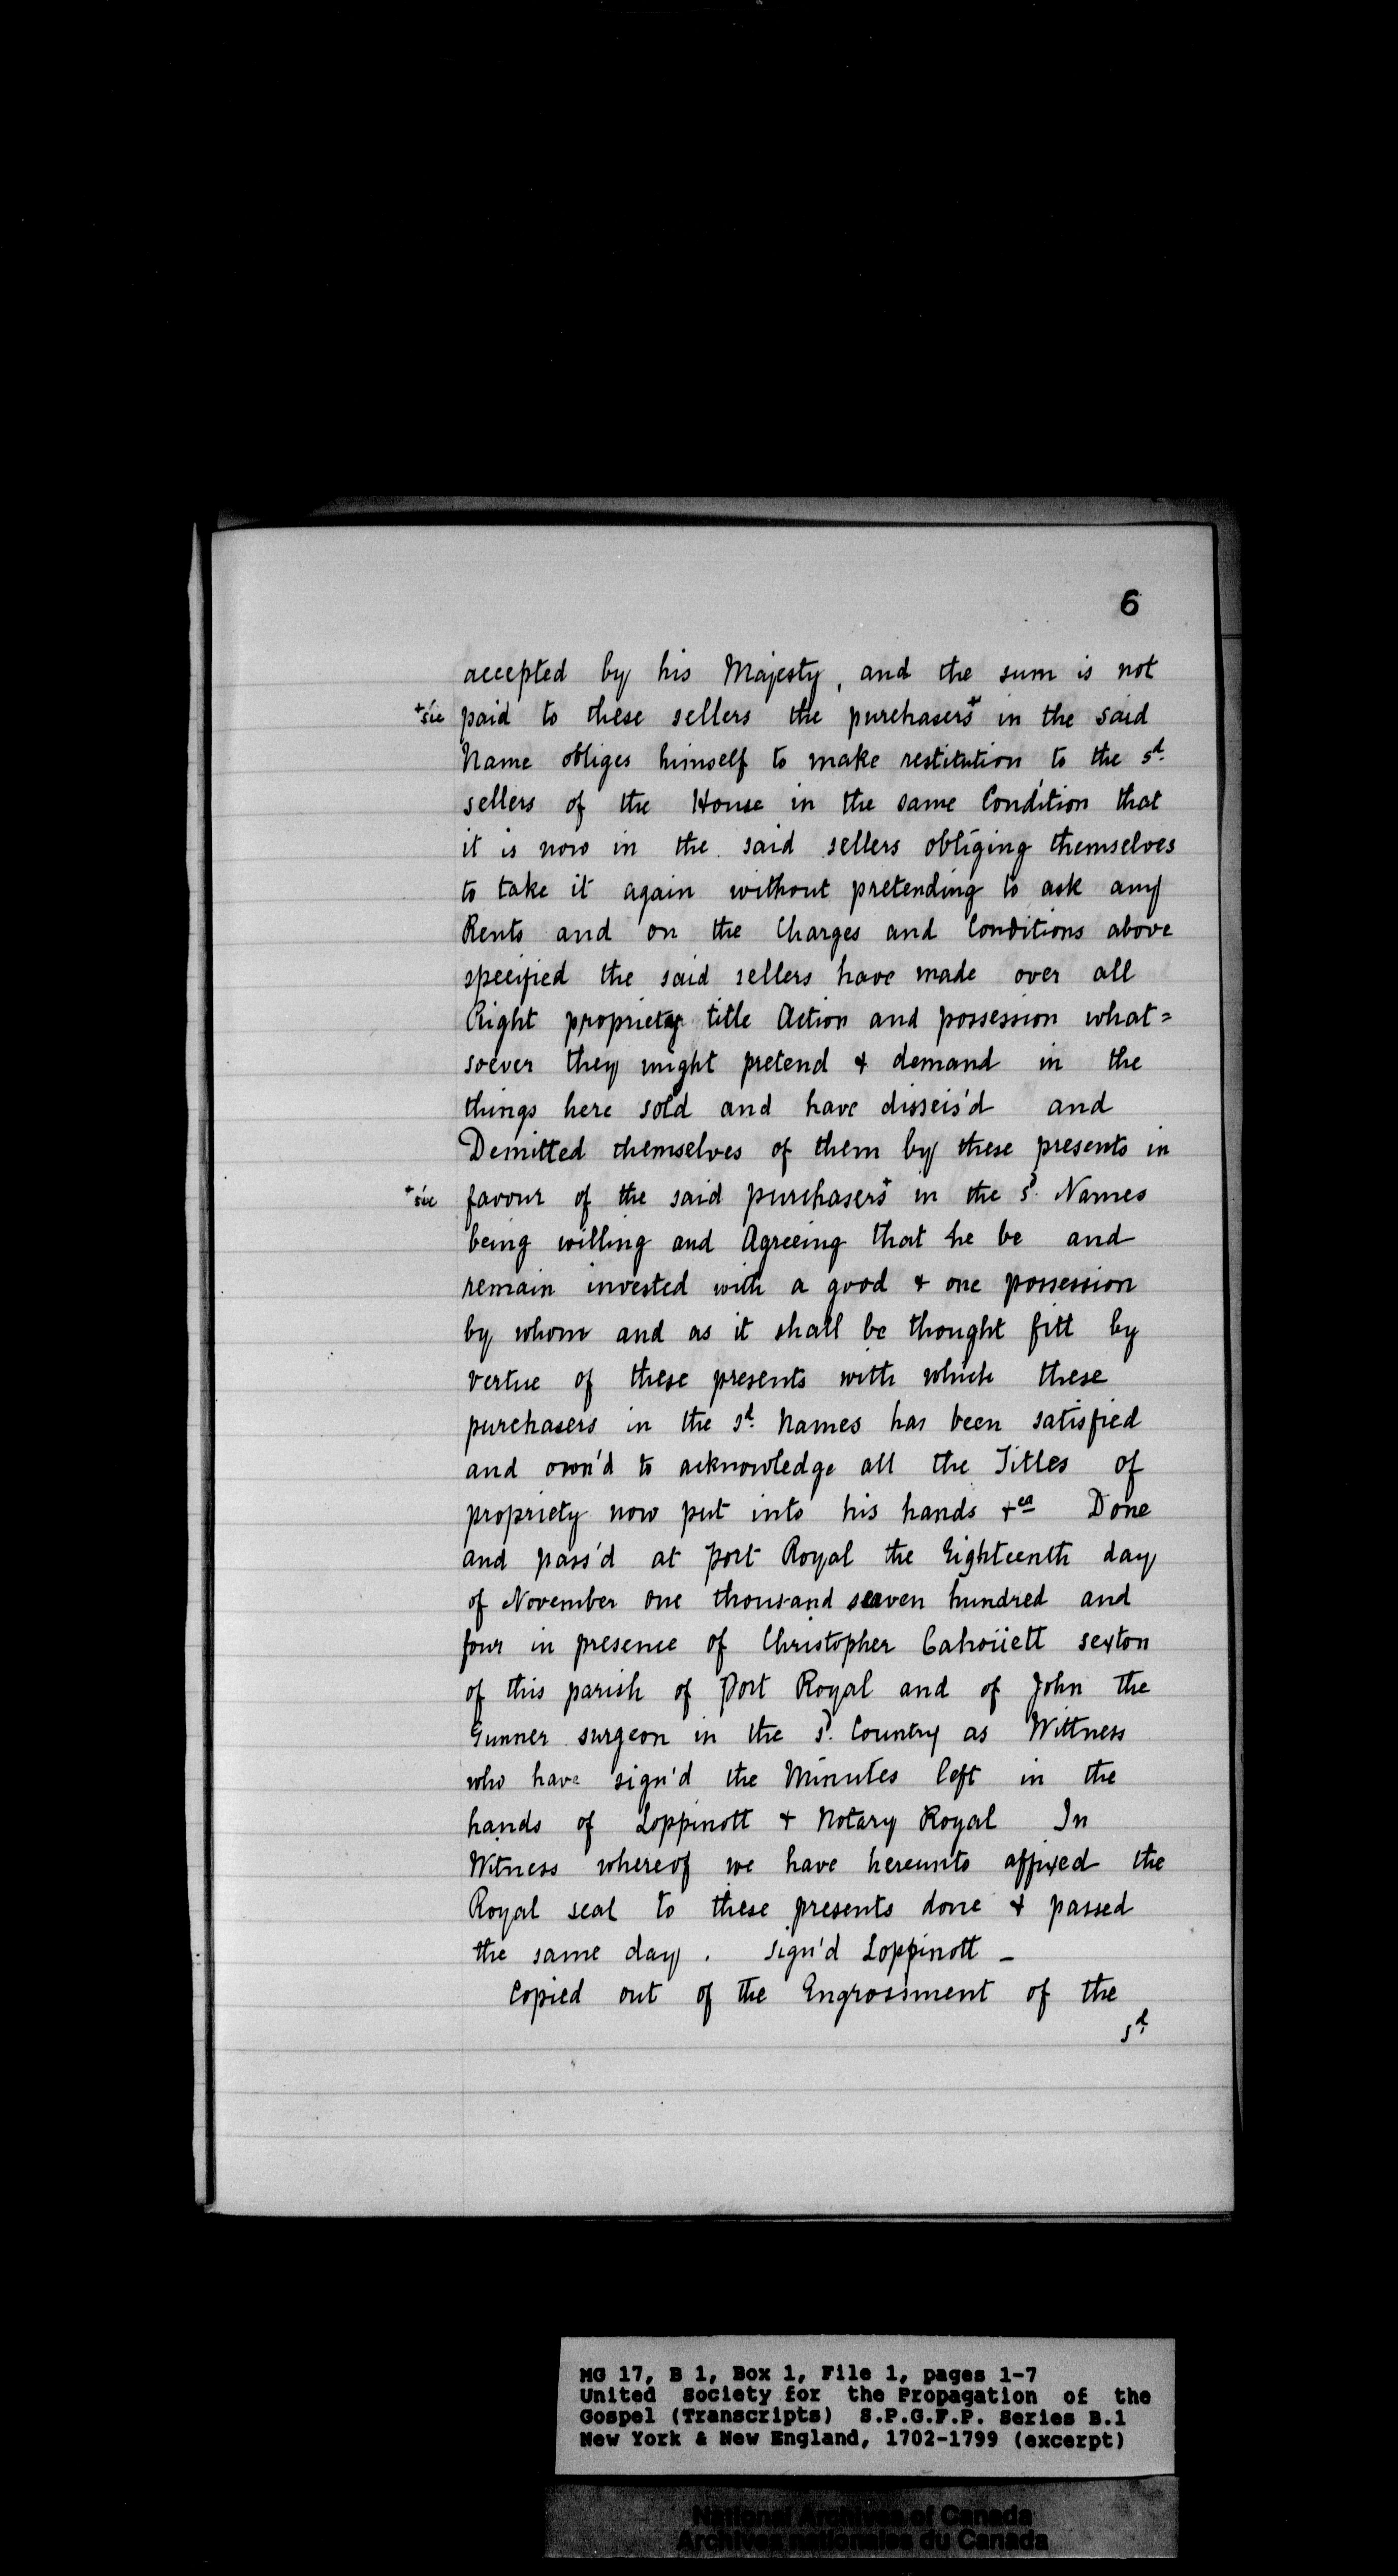 6
accepted by his Majesty, and the sum is not
+sic paid to these sellers the purchasers+ in the said
Name obliges himself to make restitution to the sd.
sellers of the House in the same Condition that
it is now in the said sellers obliging themselves
to take it again without pretending to ask any
Rents and on the Charges and Conditions above
specified the said sellers have made over all
Right propriety title Action and possession what=
soever they might pretend & demand in the
things here sold and have disseis'd and
Demitted themselves of them by these presents in
+sic favour of the said purchasers+ in the sd. Names
being willing and Agreeing that he be and
remain invested with a good & one possession
by whom and as it shall be thought fitt by
vertue of these presents with which these
purchasers in the sd. Names has been satisfied
and own'd to acknowledge all the Titles of
propriety now put into his hands &ca Done
and pass'd at port Royal the Eighteenth day
of November one thousand seaven hundred and
four in presence of Christopher Cahoüett sexton
of this parish of Port Royal and of John the
Gunner surgeon in the sd. Country as Wittness
who have sign'd the Minutes left in the
hands of Loppinott & Notary Royal In
Witness whereof we have hereunto affixed the
Royal seal to these presents done & passed
the same day. sign'd Loppinott -
Copied out of the Engrossment of the
sd.
MG 17, B 1, Box 1, File 1, pages 1-7
United Society for the Propagation of the
Gospel (Transcripts) S.P.G.F.P. Series B.1
New York & New England, 1702-1799 (excerpt)
National Archives of Canada
Archives nationales du Canada